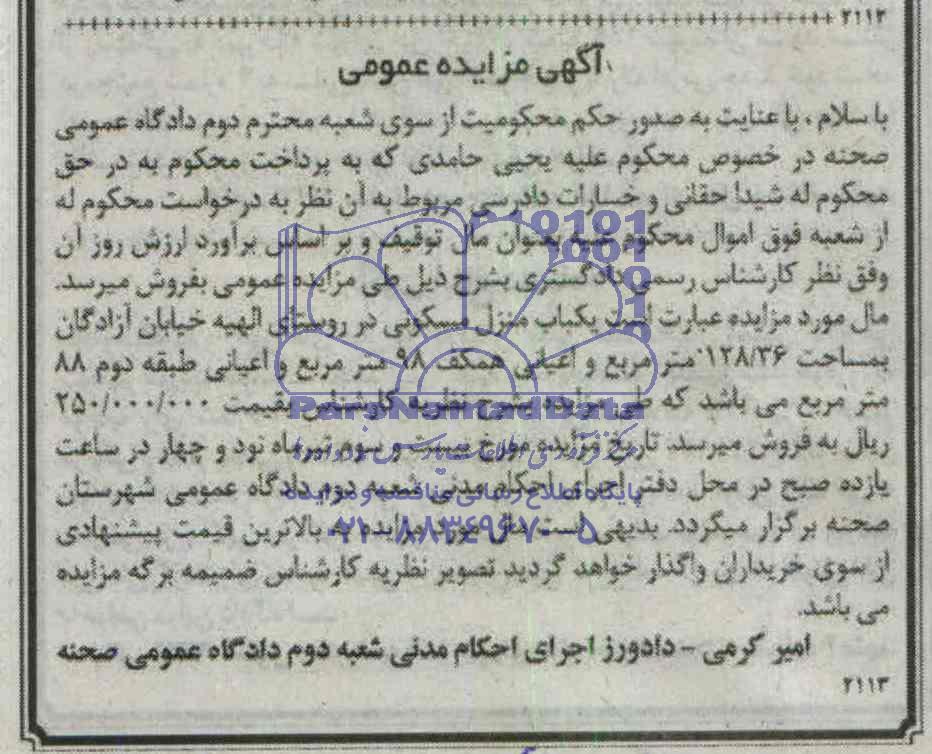 ۲۱۱۲
آگهی مزایده عمومی
با سلام، با عنایت به صدور حکم محکومیت از سوی شعبه محترم دوم دادگاه عمومی
صحنه در خصوص محکوم علیه یحیی حامدی که به پرداخت محکوم به در حق
محکوم له شیدا حقانی و خسارات دادرسی مربوط به آن نظر به درخواست محکوم له
از شعبه فوق اموال محکوم علیه بعنوان مال توقیف و بر اساس برآورد ارزش روز آن
وفق نظر کارشناس رسمی دادگستری بشرح ذیل طی مزایده عمومی بفروش میرسد.
مال مورد مزایده عبارت است یکباب منزل مسکونی در روستای الهیه خیابان آزادگان
بمساحت ۱۲۸/۳۶ متر مربع و اعیانی همکف ۹۸ متر مربع و اعیانی طبقه دوم ۸۸
متر مربع می باشد که طی مزایده بشرح نظریه کارشناس بقیمت ۲۵۰/۰۰۰/۰۰۰
ریال به فروش میرسد. تاریخ مزایده مورخ بیست و سوم تیرماه نود و چهار در ساعت
یازده صبح در محل دفتر اجرای احکام مدنی شعبه دوم دادگاه عمومی شهرستان
صحنه برگزار میگردد. بدیهی است مال مورد مزایده به بالاترین قیمت پیشنهادی
از سوی خریداران واگذار خواهد گردید تصویر نظریه کارشناس ضمیمه برگه مزایده
می باشد.
امیر کرمی - دادورز اجرای احکام مدنی شعبه دوم دادگاه عمومی صحنه
۲۱۱۳
ParsNamadData
پایگاه اطلاع رسانی مناقصه و مزایده
۰۲۱-۸۸۳۴۹۶۷۰-۵